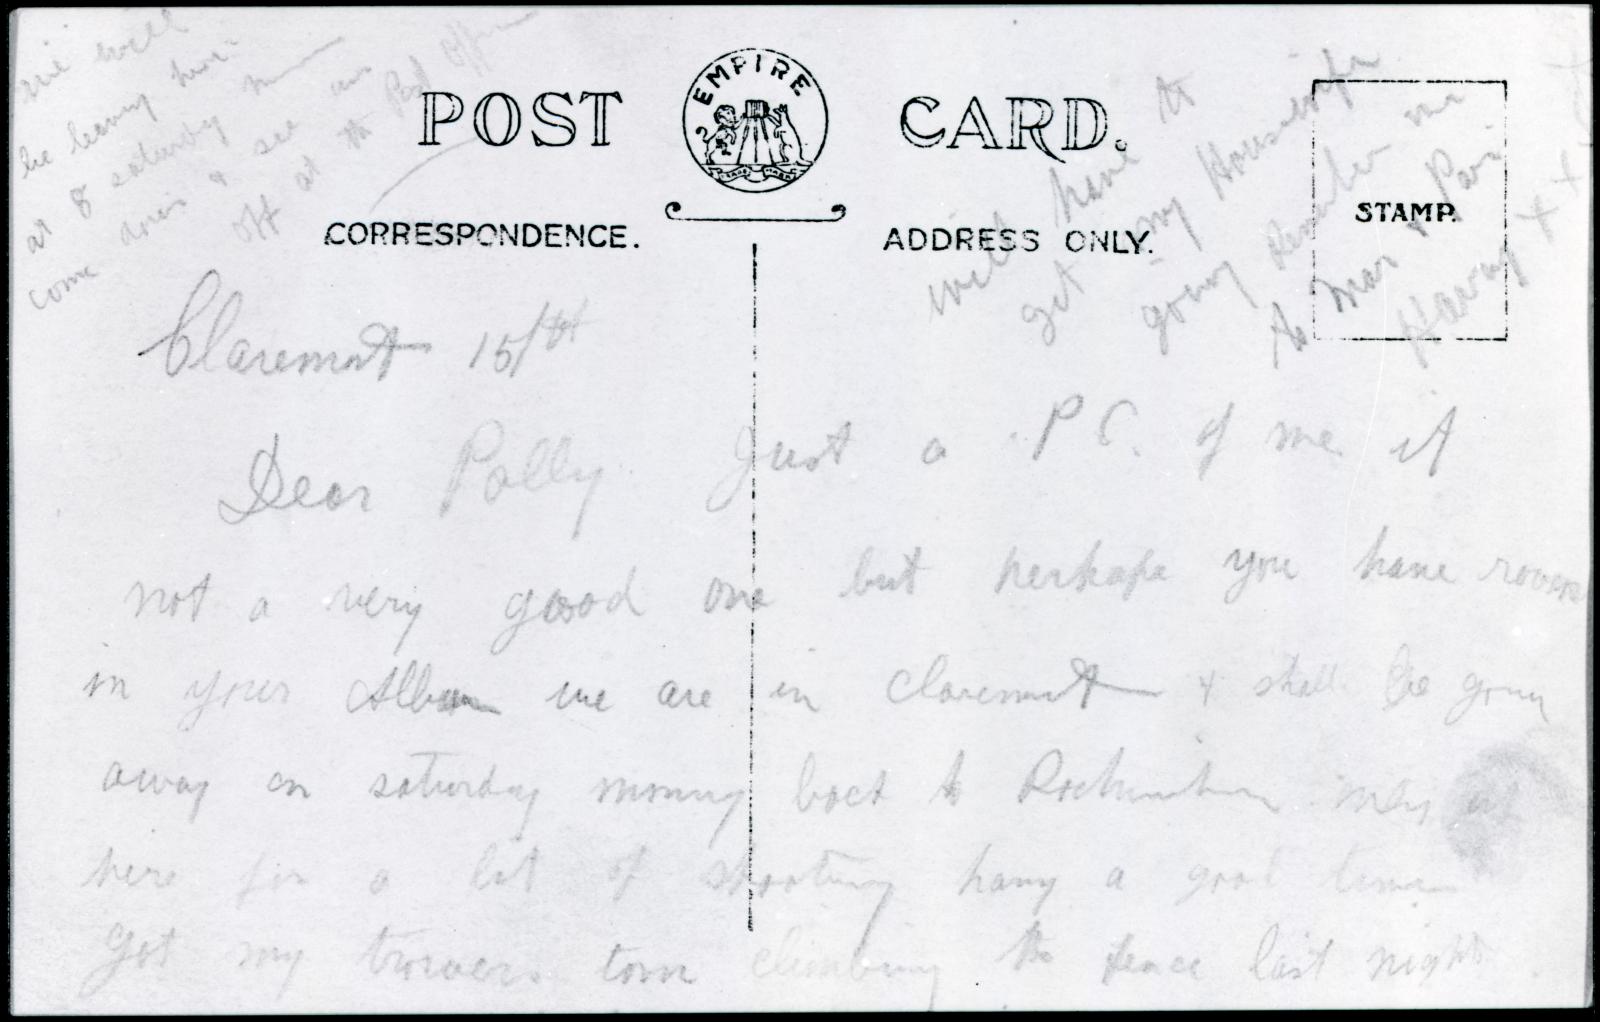 we will
be leaving here
at 8 saturday
come down & see us
off at the Post Office
POST CARD.
EMPIRE
TRADE MARK
CORRESPONDENCE.
ADDRESS ONLY.
STAMP.
will have to
get my Housewife
going Remember me
to Mar & Pa
Harry x x x
Claremont 15/th
Dear Polly Just a P C. of me it
not a very good one but perhaps you have room
in your Album we are in Claremont & shall be going
away on saturday morning back to men
here for a bit of shooting having a good time
got my trousers torn climbing the fence last night